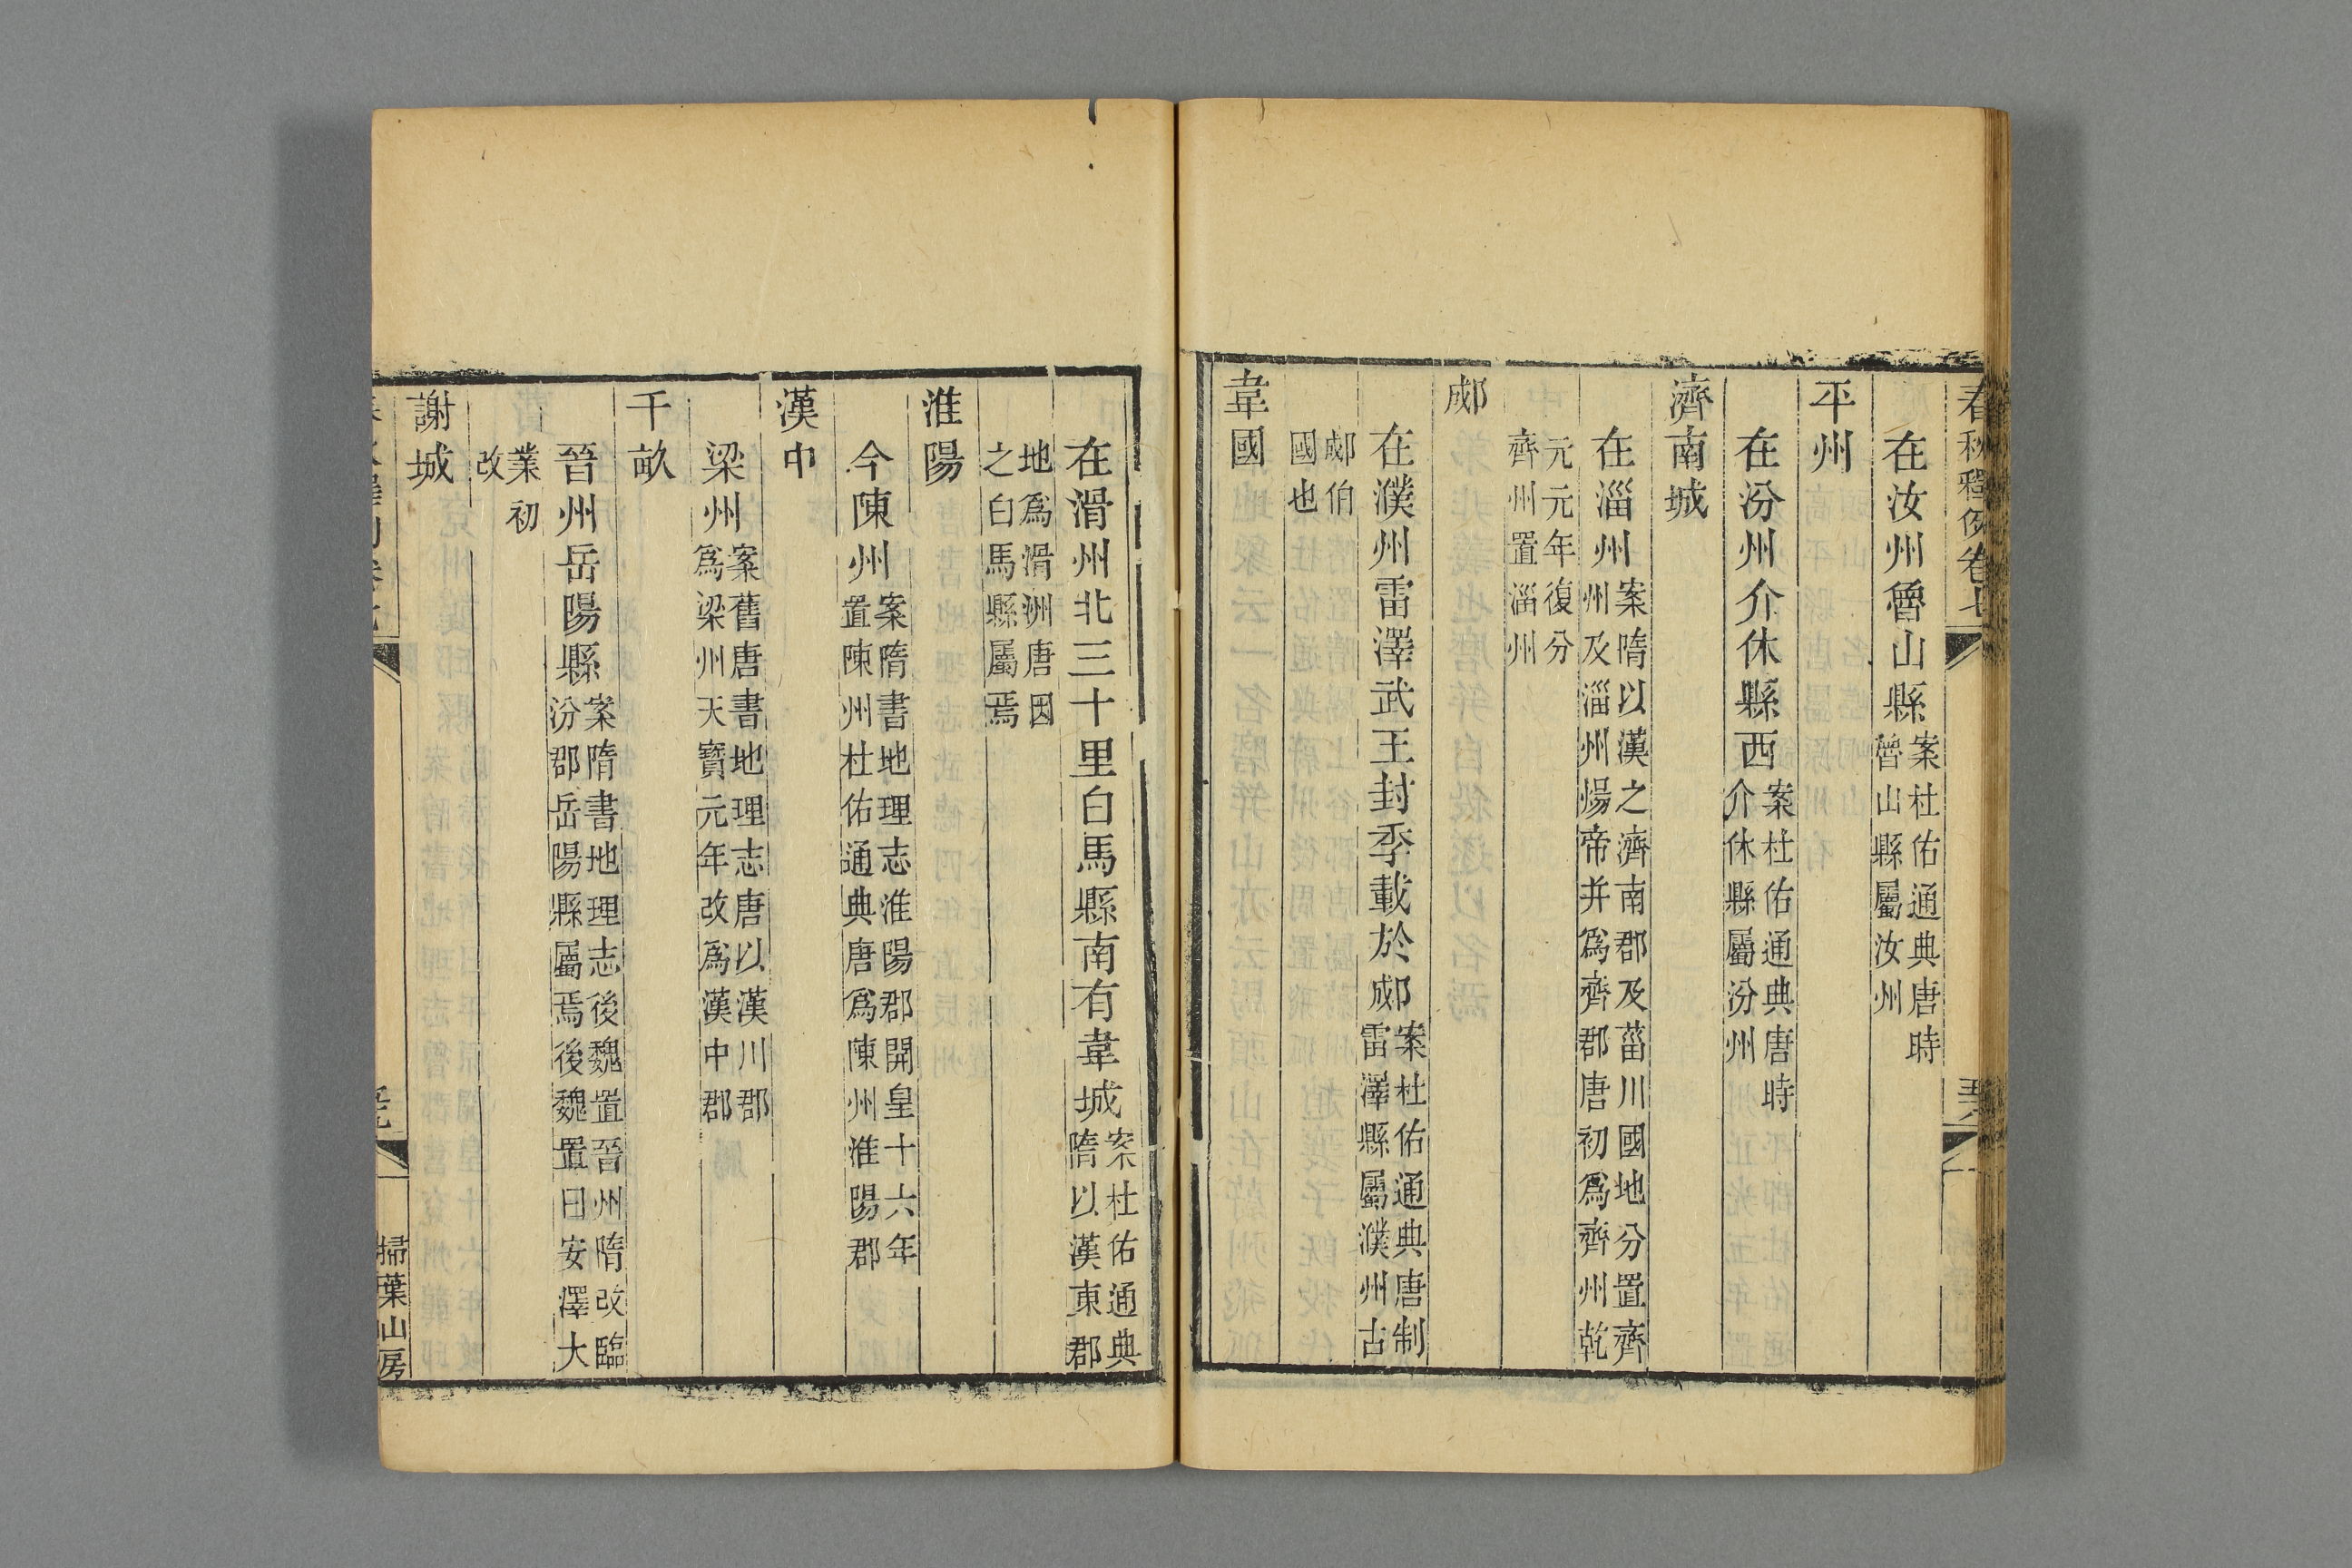 春秋釋例卷七
在汝州魯山縣案杜佑通典唐時
魯山縣屬汝州
平州
在汾州介休縣西案杜佑通典唐時
介休縣屬汾州
濟南城
在淄州案隋以漢之濟南郡及菑川國地分置齊
州及淄州煬帝并爲齊郡唐初爲齊州乾
元元年復分
齊州置淄州
郕
在濮州雷澤武王封季載於郕案杜佑通典唐制
雷澤縣屬濮州古
郕伯
國也
韋國
在滑州北三十里白馬縣南有韋城案杜佑通典
隋以漢東郡
地爲滑洲唐因
之白馬縣屬焉
淮陽
今陳州案隋書地理志淮陽郡開皇十六年
置陳州杜佑通典唐爲陳州淮陽郡
漢中
梁州案舊唐書地理志唐以漢川郡
爲梁州天寶元年改爲漢中郡
千畝
晉州岳陽縣案隋書地理志後魏置晉州隋改臨
汾郡岳陽縣屬焉後魏置曰安澤大
業初
改
謝城
掃葉山房